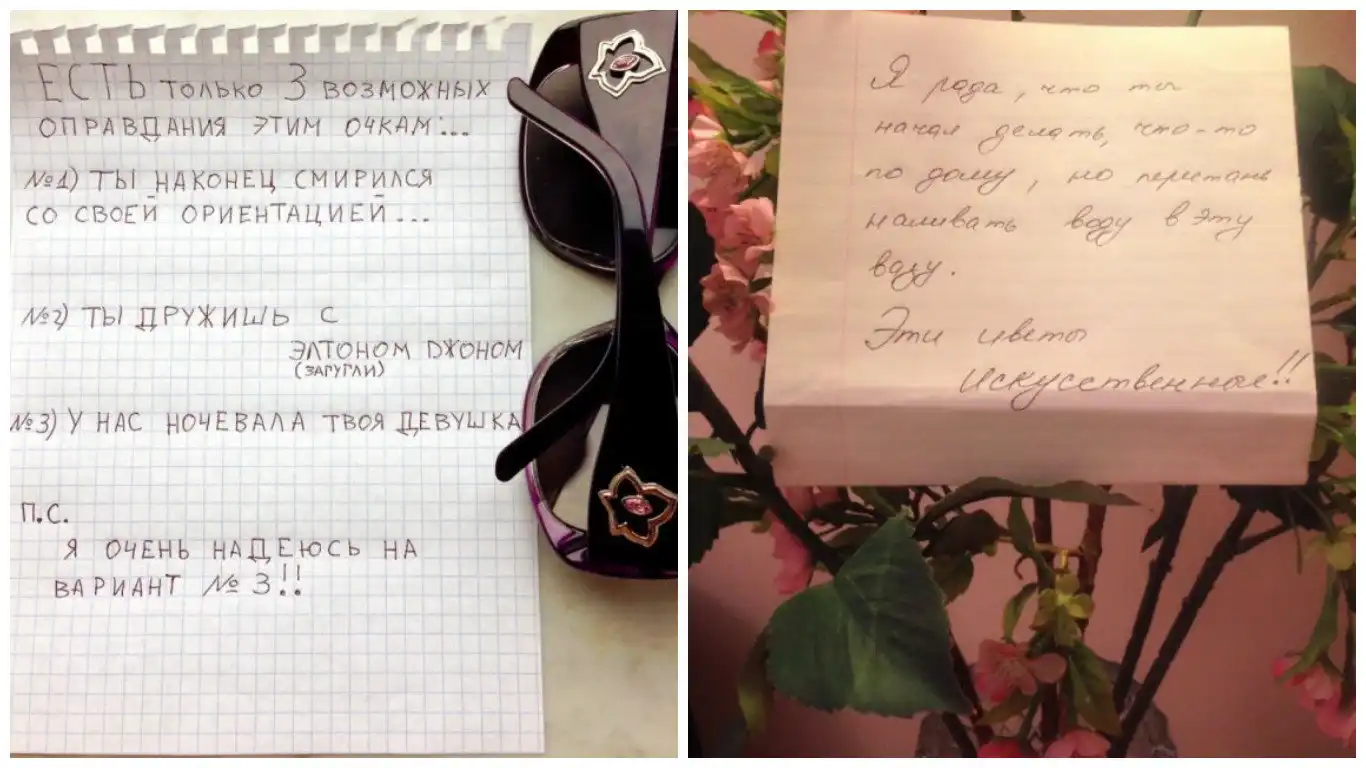 ЕСТЬ ТОЛЬКО 3 ВОЗМОЖНЫХ
ОПРАВДАНИЯ ЭТИМ ОЧКАМ:...
№1) ТЫ НАКОНЕЦ СМИРИЛСЯ
СО СВОЕЙ ОРИЕНТАЦИЕЙ...
№2) ТЫ ДРУЖИШЬ С
ЭЛТОНОМ ДЖОНОМ
(ЗАГУГЛИ)
№3) У НАС НОЧЕВАЛА ТВОЯ ДЕВУШКА
П.С.
Я ОЧЕНЬ НАДЕЮСЬ НА
ВАРИАНТ № 3!!
Я рада, что ты
начал делать, что-то
по дому, но перестань
наливать воду в эту
вазу.
Эти цветы
Искусственные!!